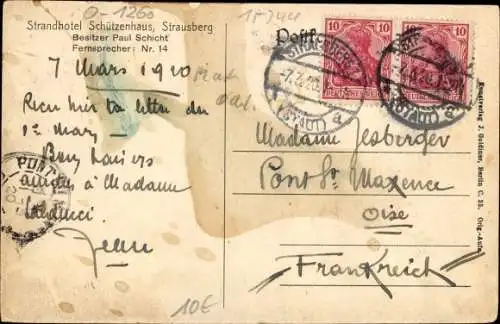 O-1260
15344
Strandhotel Schützenhaus, Strausberg
Besitzer Paul Schicht
Fernsprecher: Nr. 14
7 Mars 1920
Reçu hier ta lettre du
1er mars
Bons baisers
à Madame
Jean
10€
10
10
STRAUSBERG
(STADT)
a
(STADT)
a
PONT
Madame Jesberger
Pont Ste Maxence
Oise
Frankreich
Kunstverlag J. Goldiner, Berlin C. 25. Orig.-Aufn.